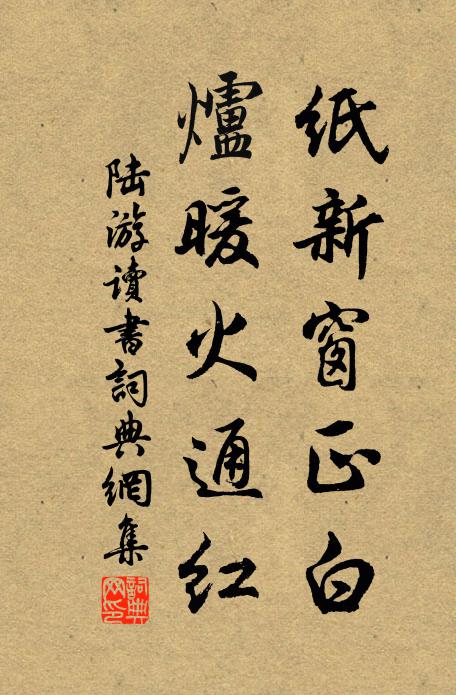 紙新窗正白
爐暖火通紅
陸游讀書詞典網集
詞典
网印